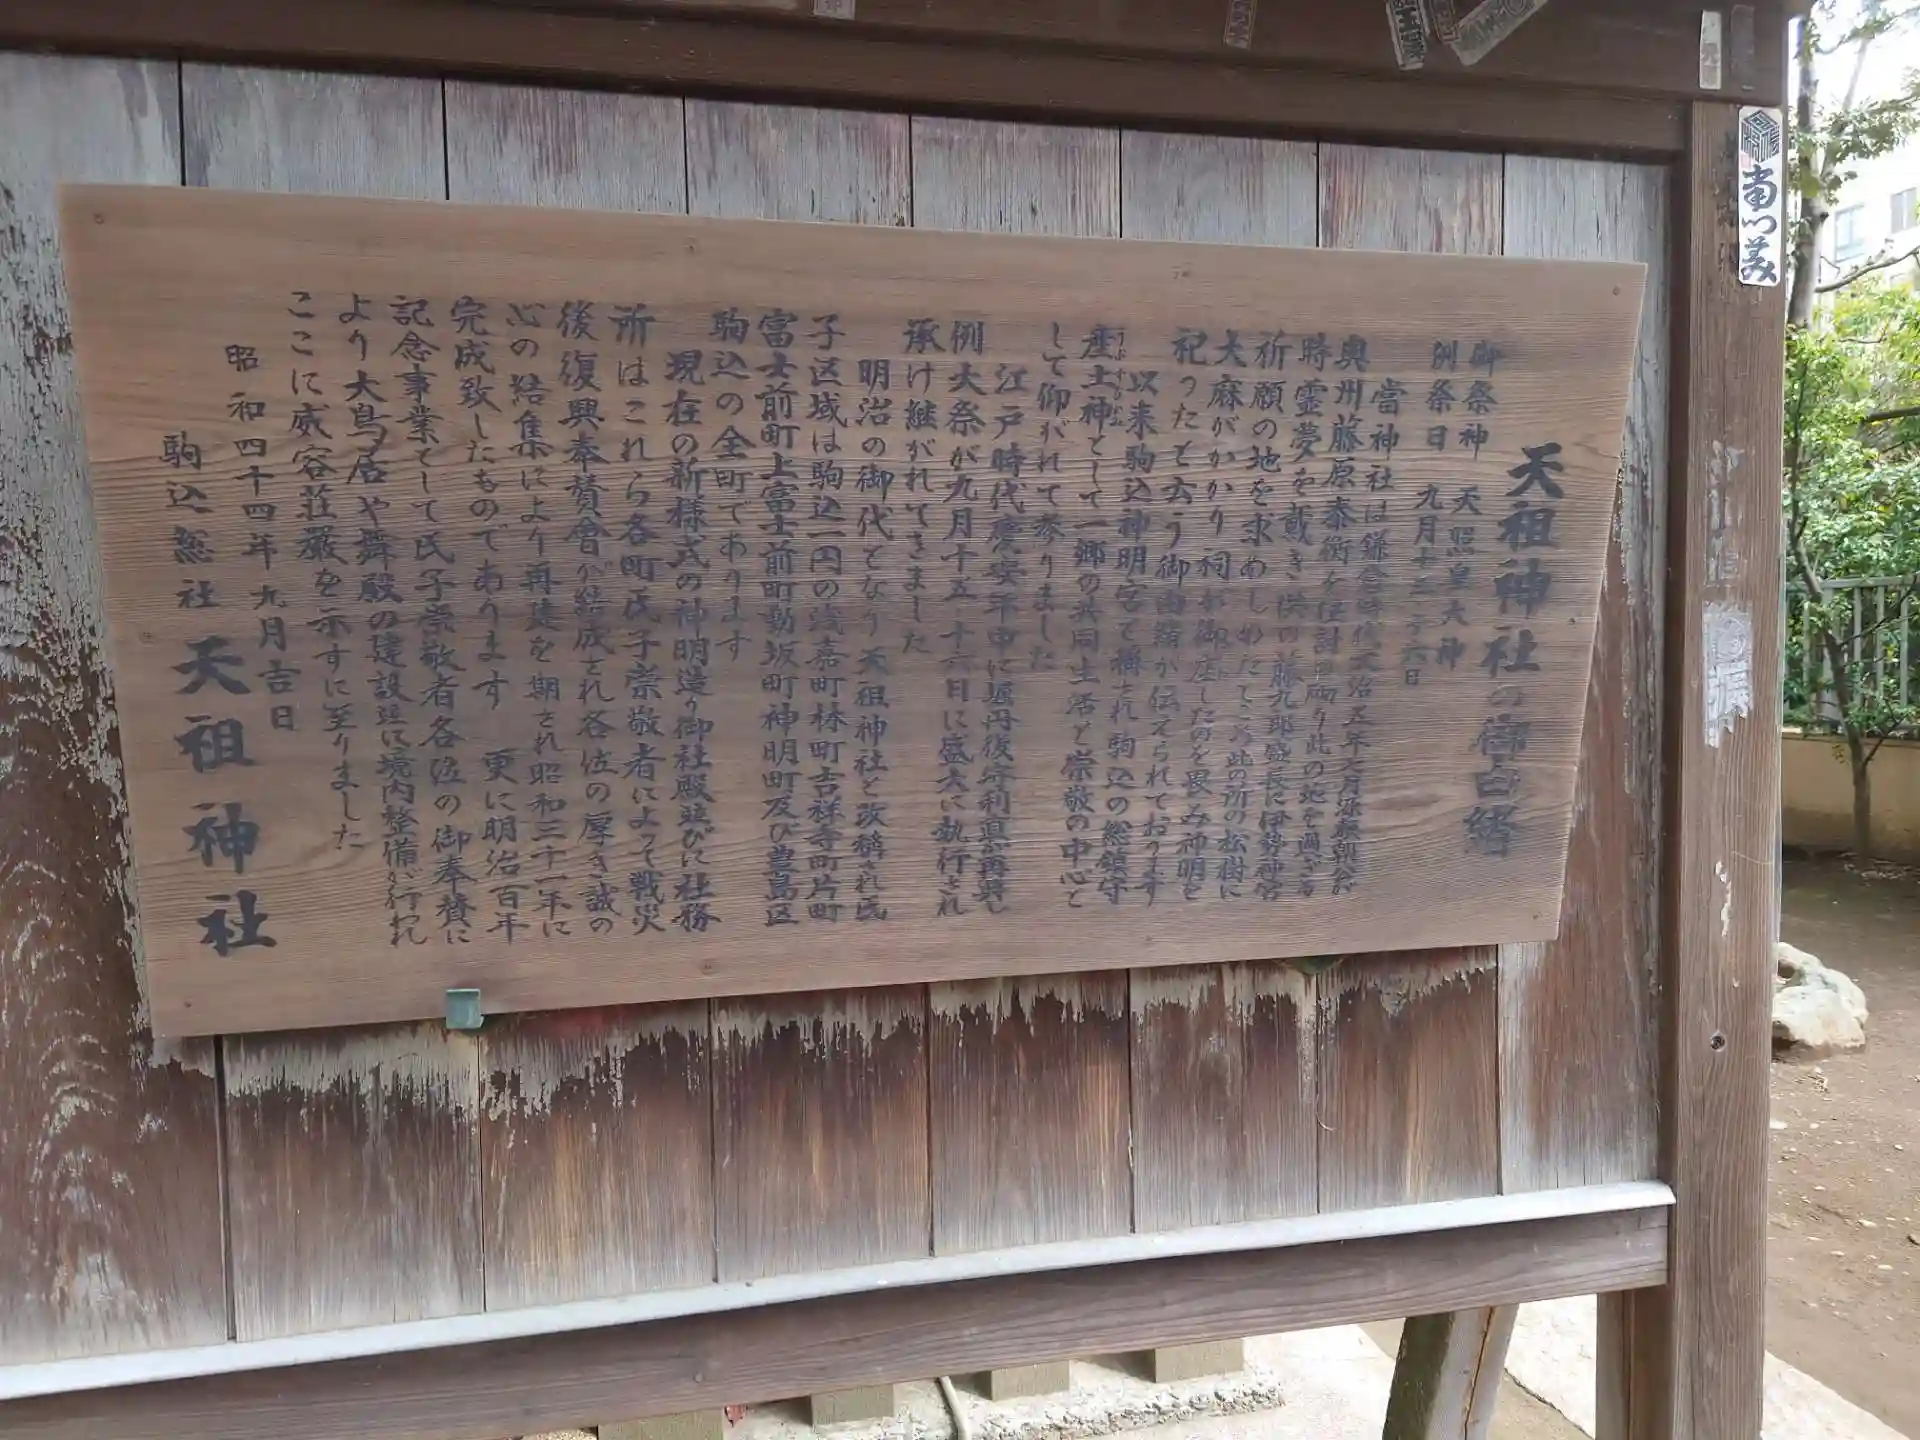 天祖神社の御由緒
御祭神 天照皇大神
例祭日 九月十五、十六日
當神社は鎌倉時代文治五年七月源頼朝公が
奥州藤原泰衡を征討の砌り此の地を過ぎる
時霊夢を戴き供の藤九郎盛長に伊勢神宮
祈願の地を求めしめたところ此の所の松樹に
大麻がかかり祠が御座したのを畏み神明を
祀ったと云う御由緒が伝えられております
以来駒込神明宮と稱され駒込の総鎮守
産土神として一郷の共同生活と崇敬の中心と
うぶすな
して仰がれて参りました
江戸時代慶安年中に堀丹後守利直再興し
例大祭が九月十五、十六日に盛大に執行され
承け継がれてきました
明治の御代となり天祖神社と改稱され氏
子区域は駒込一円の浅嘉町林町吉祥寺町片町
富士前町上富士前町動坂町神明町及び豊島区
駒込の全町であります
現在の新様式の神明造り御社殿並びに社務
所はこれら各町氏子崇敬者によって戦災
後復興奉賛會が結成され各位の厚き誠の
心の結集により再建を期され昭和三十一年に
完成致したものであります 更に明治百年
記念事業として氏子崇敬者各位の御奉賛に
より大鳥居や舞殿の建設並に境内整備が行われ
ここに威容荘厳を示すに至りました
昭和四十四年九月吉日
駒込総社 天祖神社